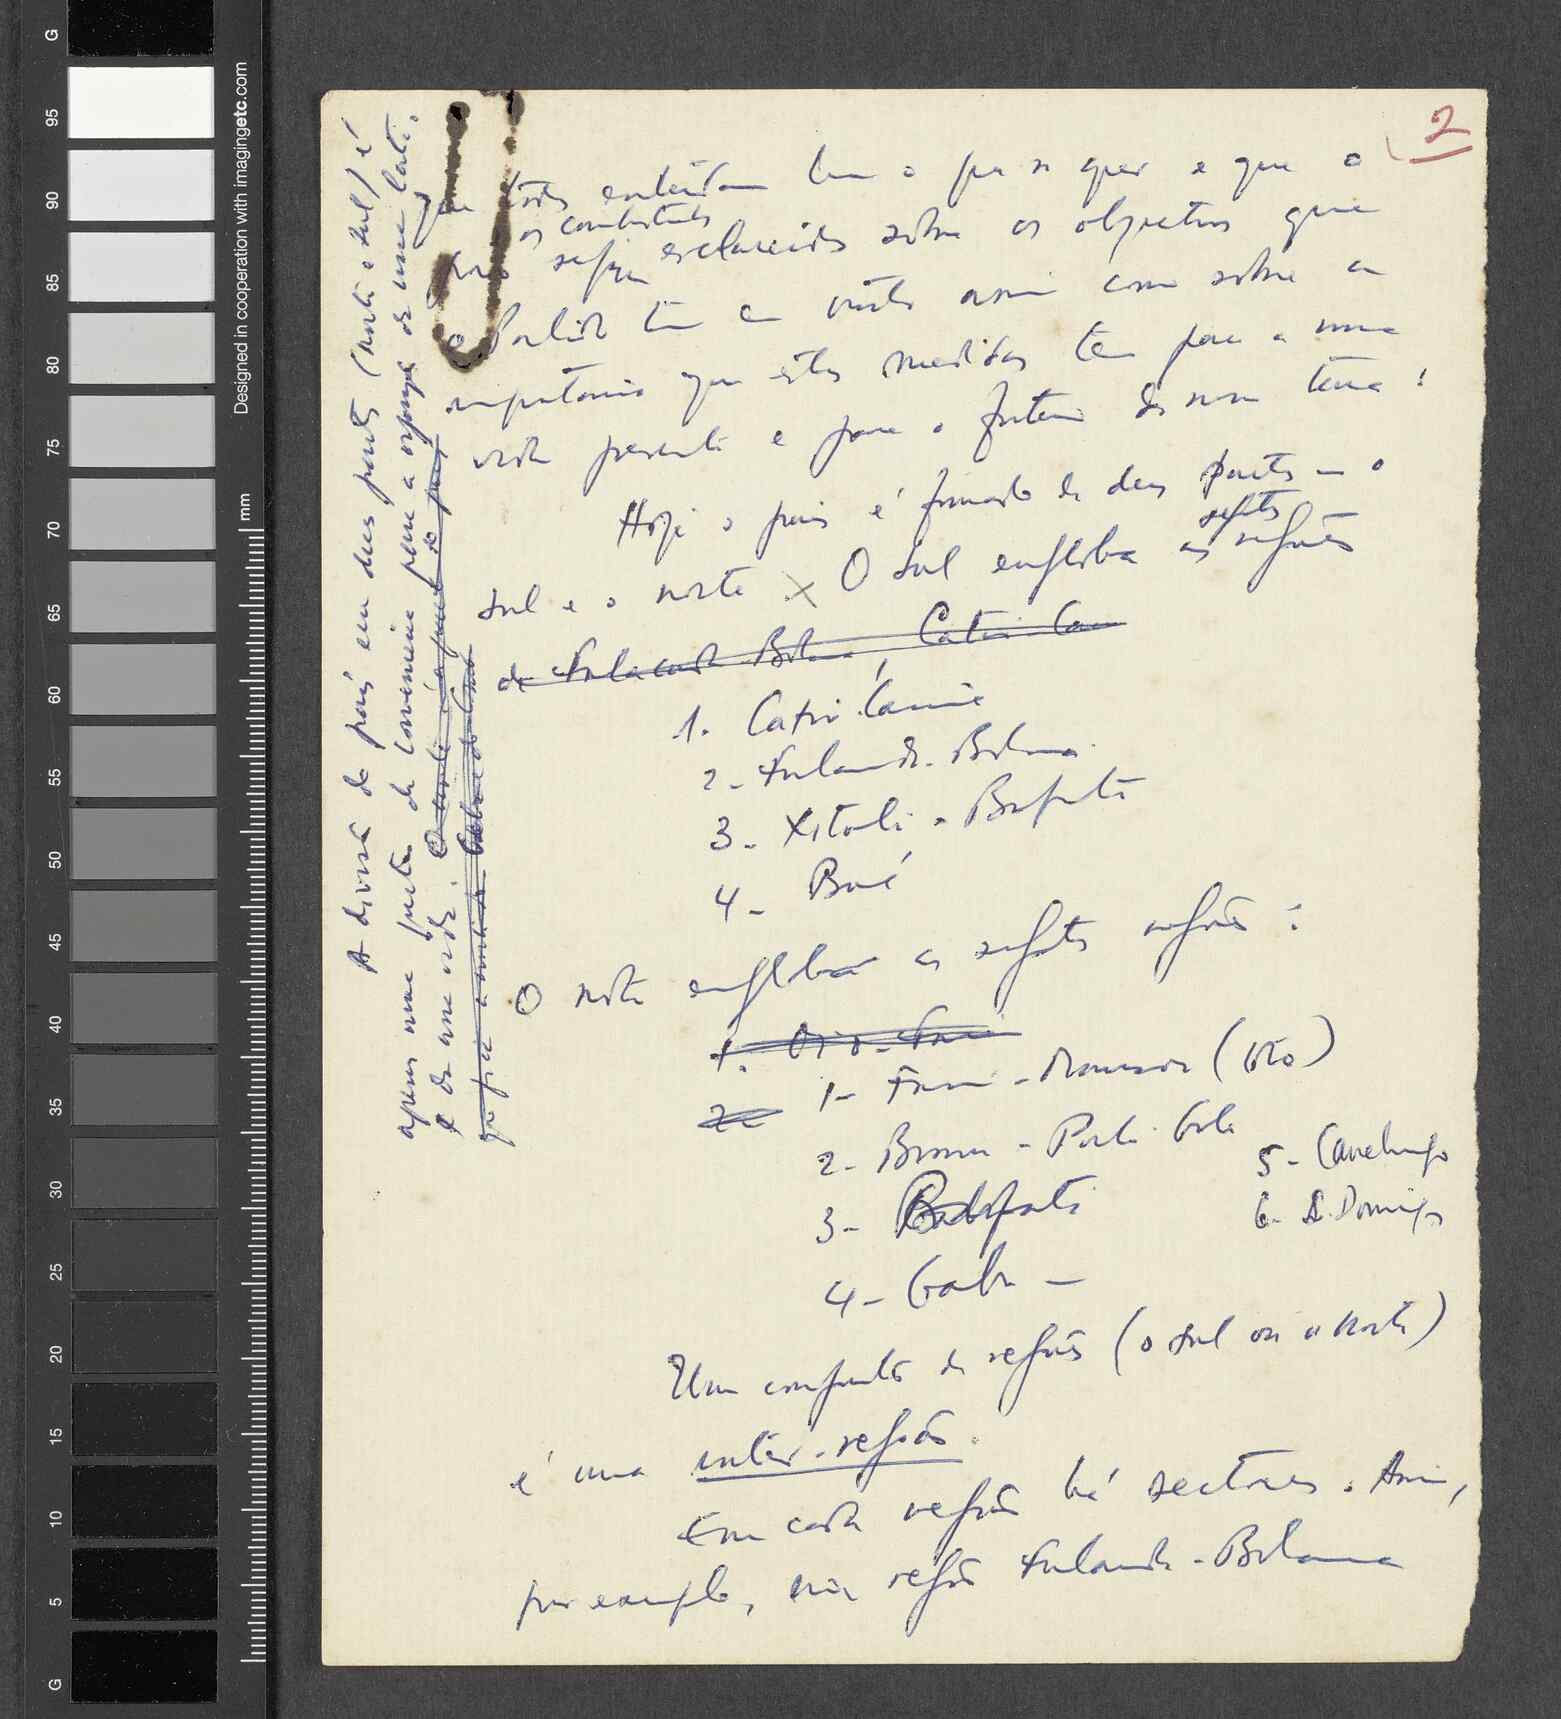 2
que todos entendam bem o que se quer e que o
os combatentes
povo sejam esclarecidos sobre os objectivos que
o Partido tem em vista assim como sobre a
importância que estas medidas têm para a nossa
vida presente e para o futuro da nossa terra!
Hoje o país é formado de duas partes — o
seguintes
sul e o norte × O sul engloba as regiões
de Fulacunda Bolama, Catió-Can
1. Catió-Cacine
2- Fulacunda-Bolama
3- Xitoli - Bafatá
4- Boé
O norte engloba as seguintes regiões:
1. Oio-Farim
2-
1- Farim - Mansoa (Oio)
2- Bissau - Porto Gole
3- Bafatá
4- Gabu —
5- Canchungo
6- S. Domingos
Um conjunto de regiões (o sul ou o norte)
é uma inter-região.
Em cada região há sectores. Assim,
por exemplo, na região Fulacunda-Bolama
A divisão do país em duas partes (norte e sul) é
apenas uma questão de conveniência para a
e de uma vida.
G 95 90 85 80 75 70 65 60 55 50 45 40 35 30 25 20 15 10 5 G
mm
Designed in cooperation with imagingetc.com